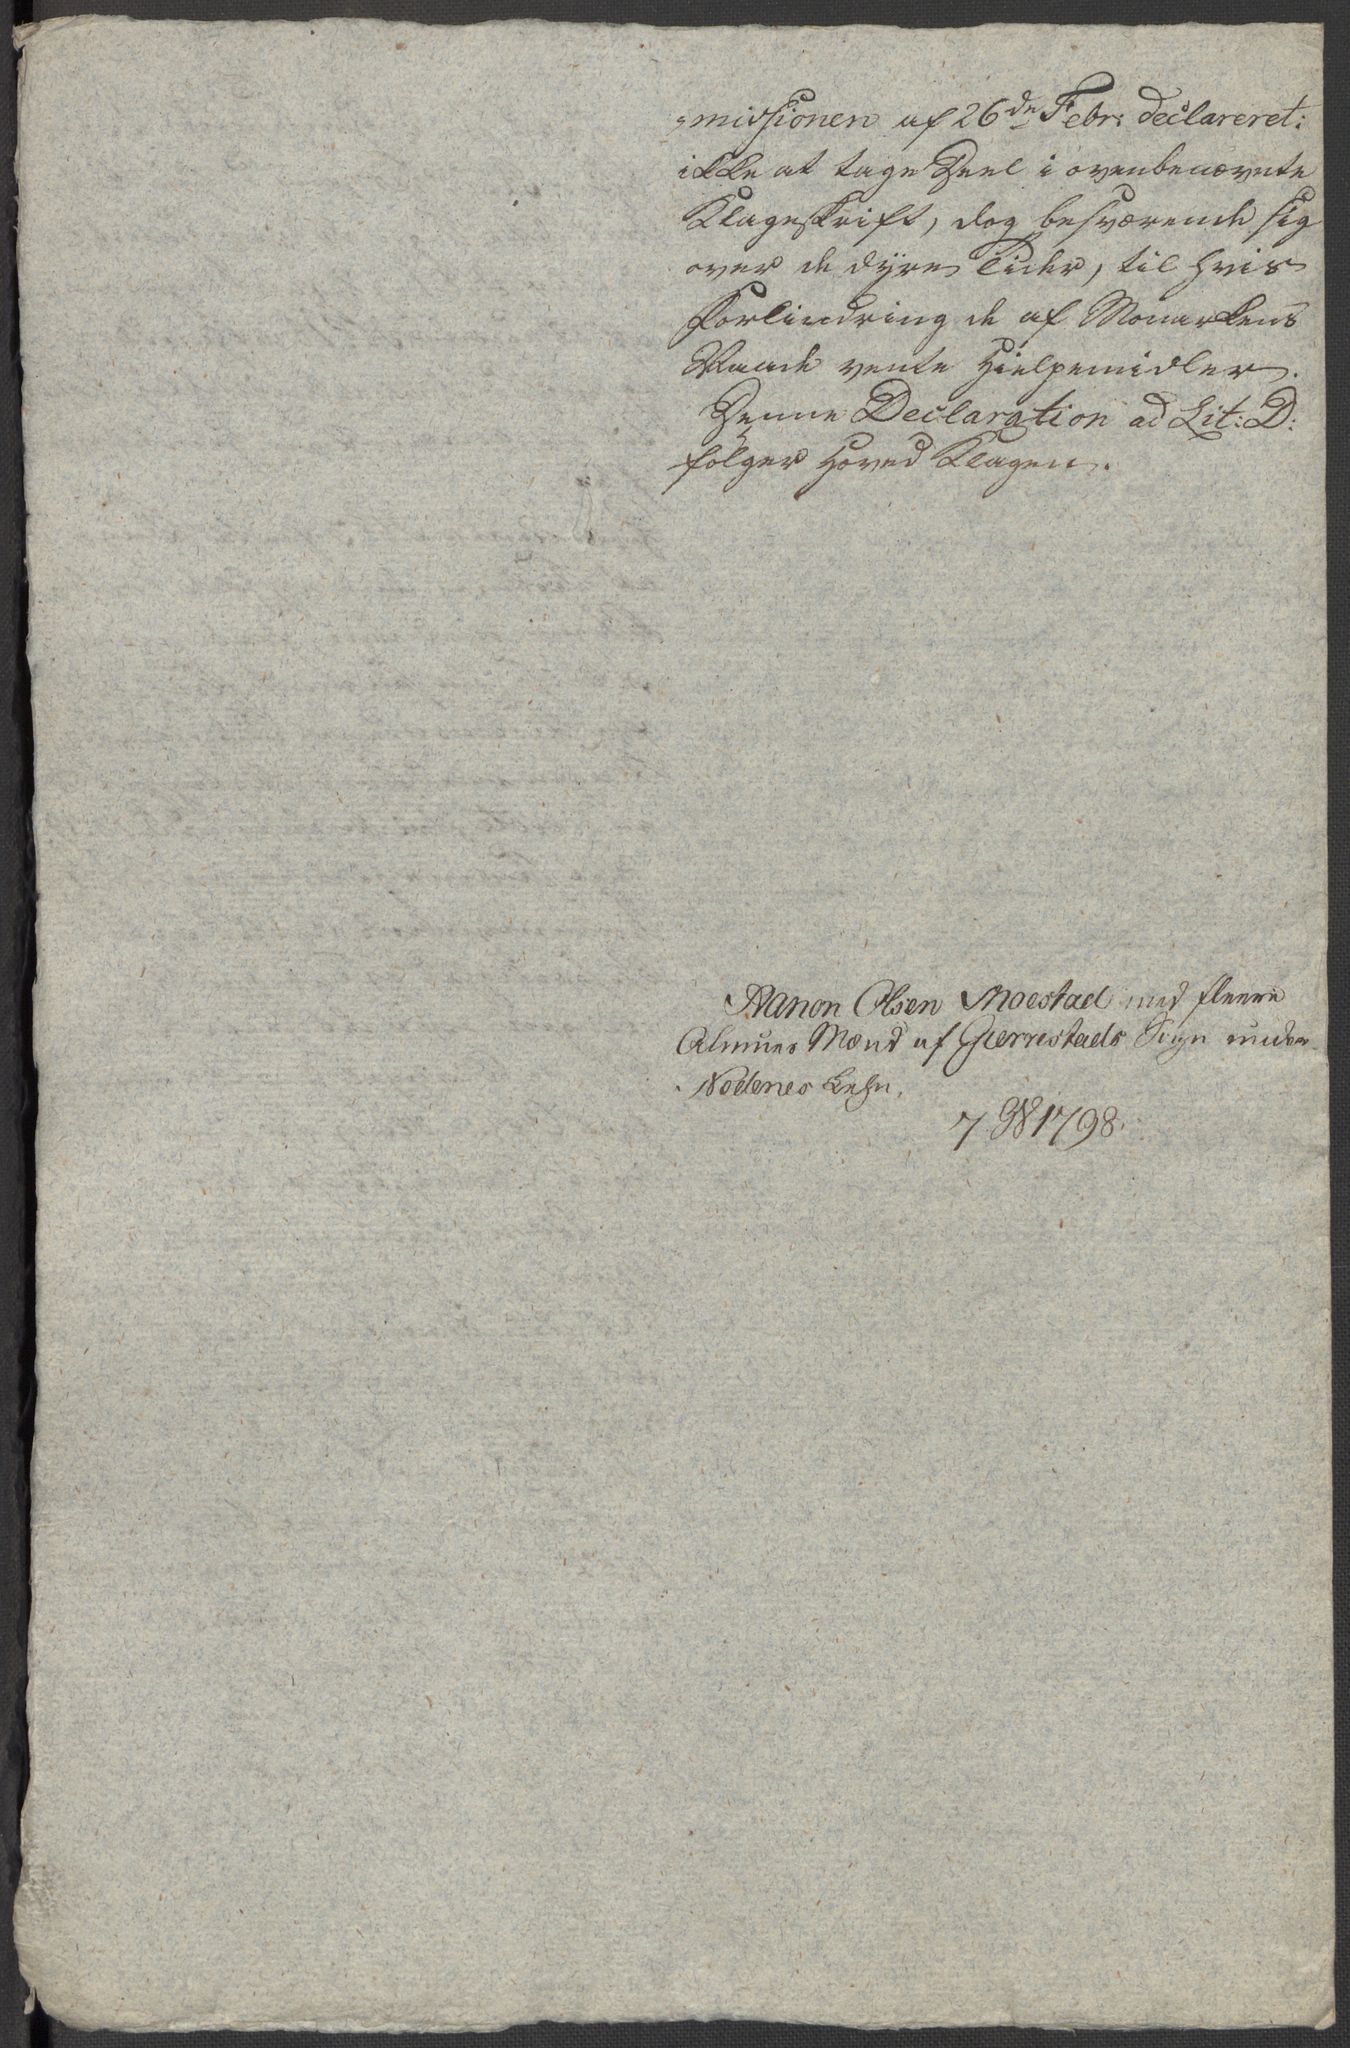 -missionen af 26de Febr: declareret:
ikke at tage Deel i ovenbenævnte
Klageskrift, dog besværende sig
over de dÿre Tider, til hvis
Forlindring de af Monarkens
Naade vente Hielpemidler.
Denne Declaration ad Lit: D:
følger Hoved Klagen.
Aanon Olsen Moestad med fleere
Almues Mænd af Gierrestads Sogn under
Nedenes Lehn.
1798.